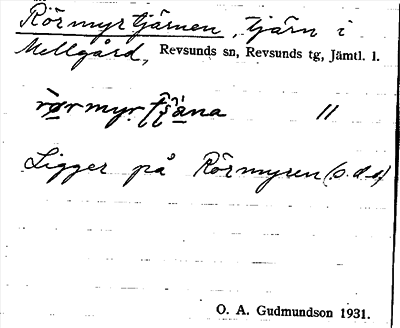 Rörmyrtjärnen, tjärn i
Mellgård, Revsunds sn, Revsunds tg, Jämtl. l.
Ligger på Rörmyren (o.d.o)
O. A. Gudmundson 1931.